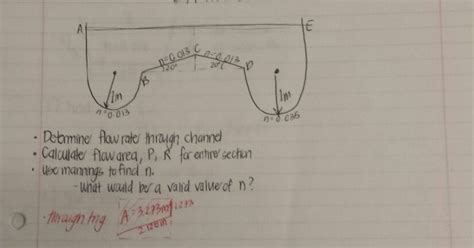 A E
n=0.013 C n=0.013
20° 20°
B D
1m 1m
n=0.013 n=0.035
• Determine flowrate through channel
• Calculate flow area, P, R for entire section
• Use mannings to find n.
- What would be a valid value of n?
• through trig A=3.273m²